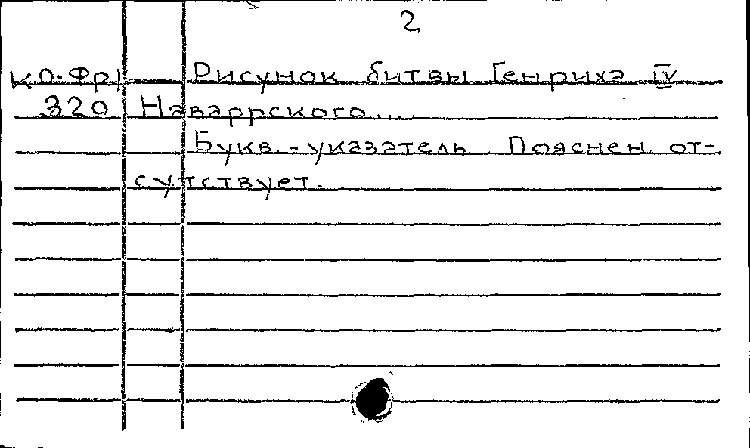 2
Ко.Фр. Рисунок битвы Генриха IV
320 Наваррского...
Букв.-указатель. Пояснен. от-
сутствует.